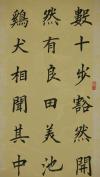 数十步豁然開
然有良田美池
鷄犬相聞其中